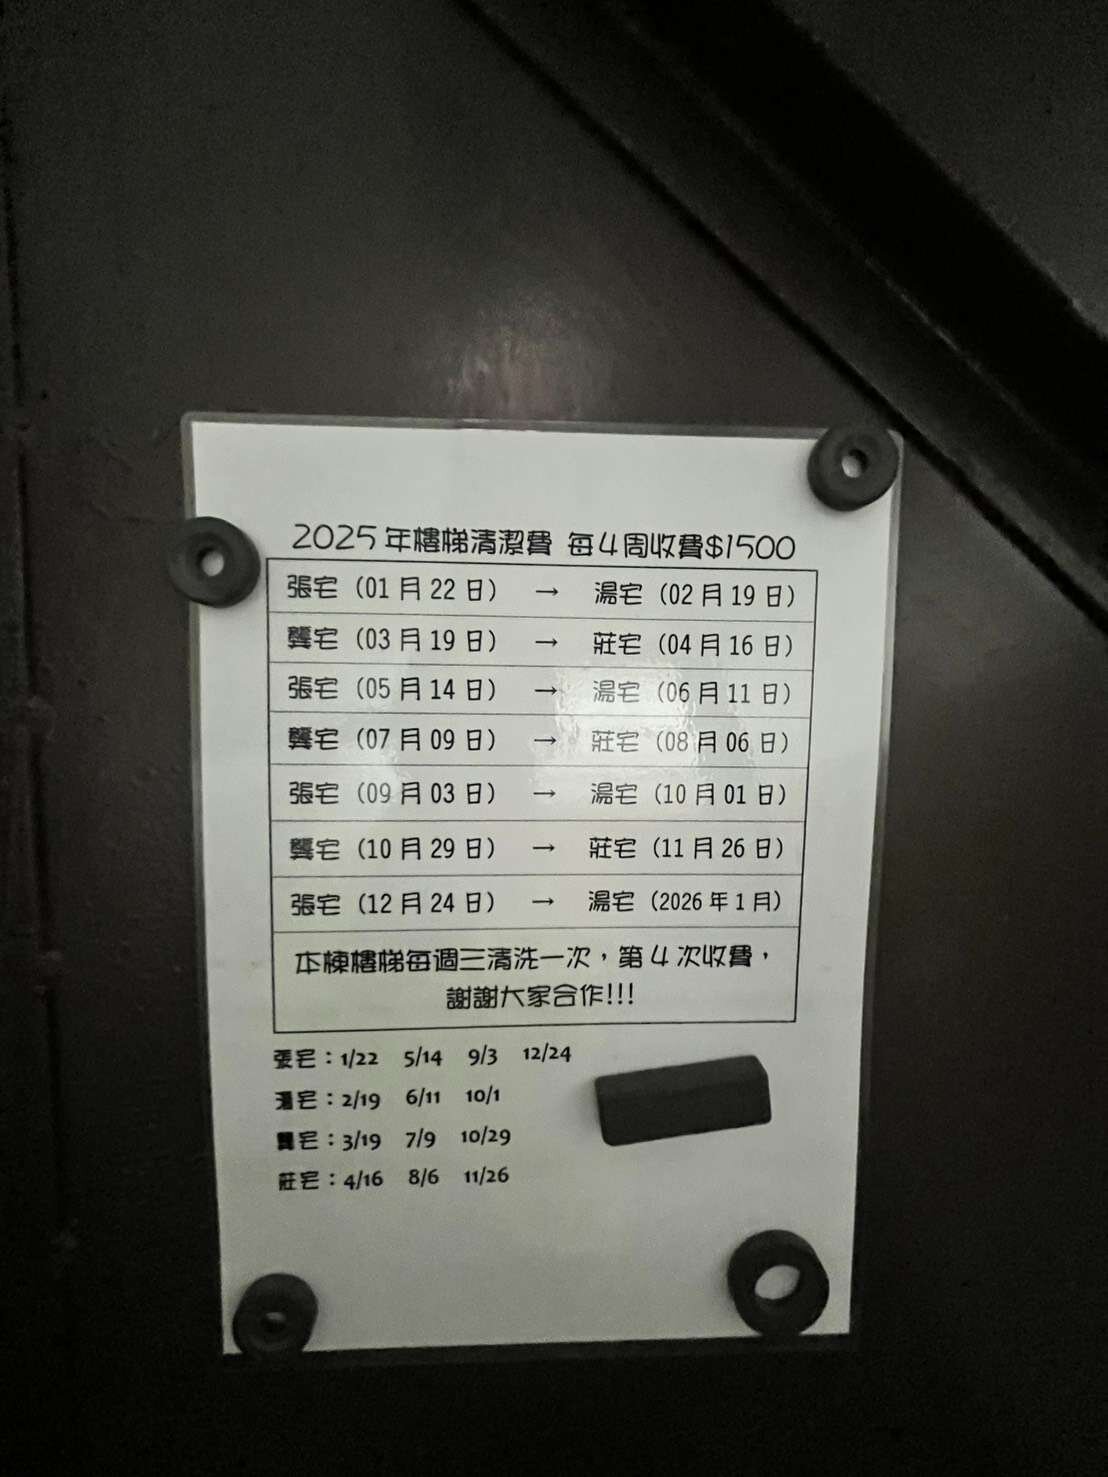 2025年樓梯清潔費 每4周收費$1500
張宅（01月22日） → 湯宅（02月19日）
龔宅（03月19日） → 莊宅（04月16日）
張宅（05月14日） → 湯宅（06月11日）
龔宅（07月09日） → 莊宅（08月06日）
張宅（09月03日） → 湯宅（10月01日）
龔宅（10月29日） → 莊宅（11月26日）
張宅（12月24日） → 湯宅（2026年1月）
本棟樓梯每週三清洗一次，第4次收費，
謝謝大家合作!!!
張宅：1/22 5/14 9/3 12/24
湯宅：2/19 6/11 10/1
龔宅：3/19 7/9 10/29
莊宅：4/16 8/6 11/26